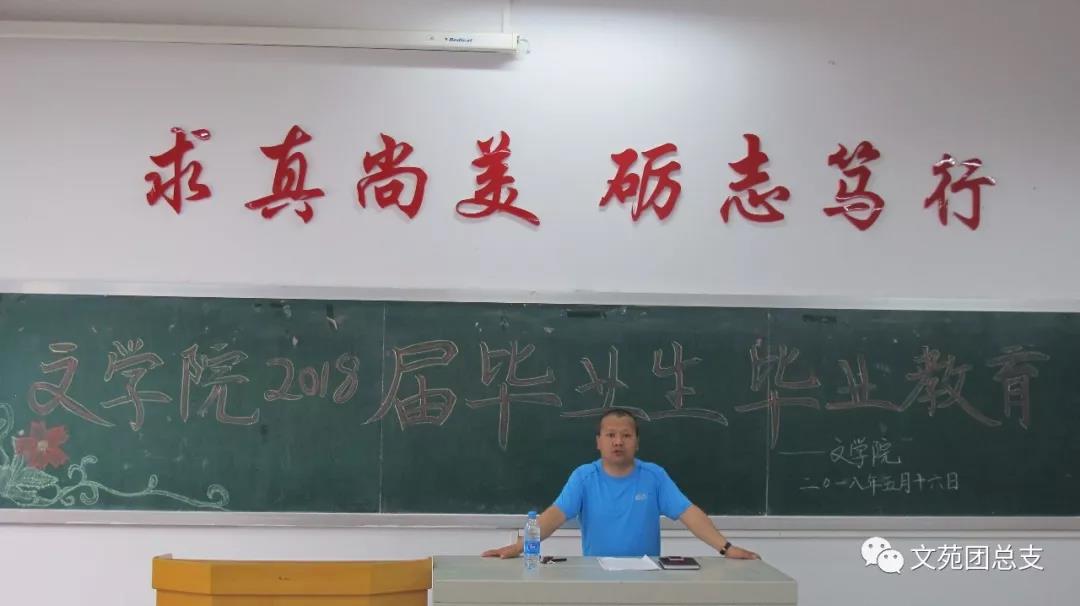 Redleaf
求真尚美 砺志笃行
文学院2018届毕业生毕业教育
——文学院
二〇一八年五月十六日
文苑团总支